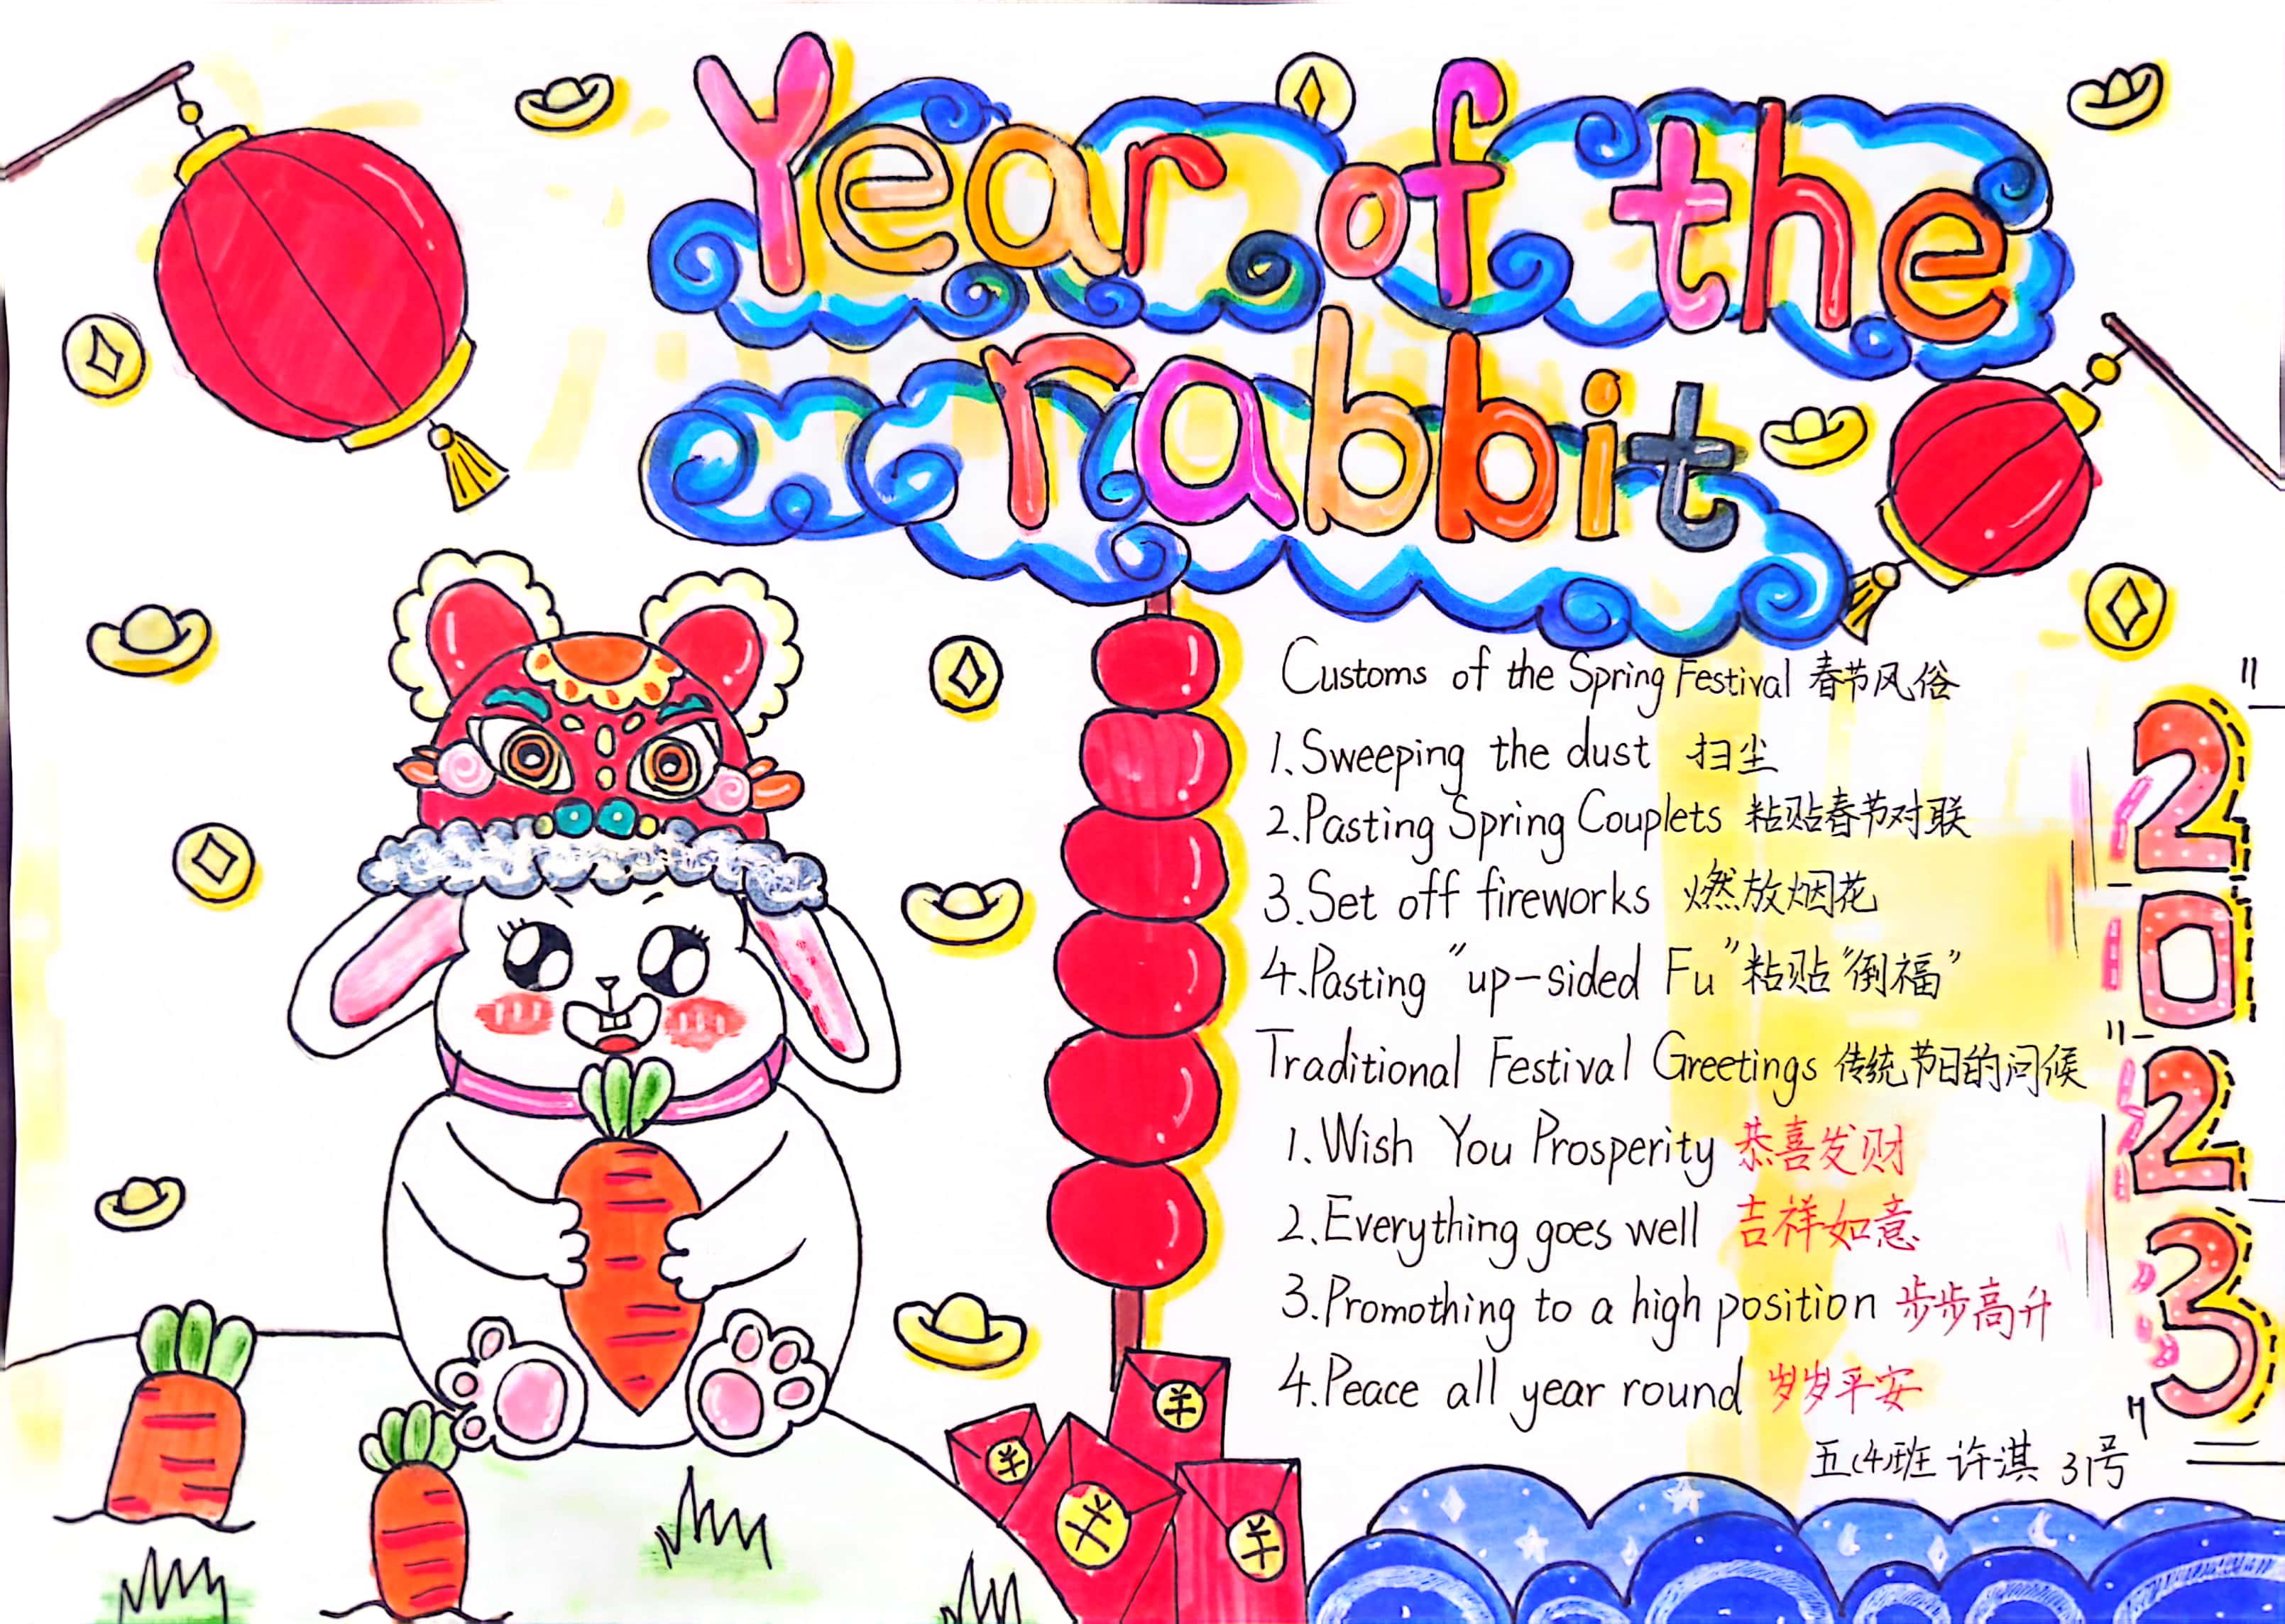 Year of the
rabbit
Customs of the Spring Festival 春节风俗
1.Sweeping the dust 扫尘
2.Pasting Spring Couplets 粘贴春节对联
3.Set off fireworks 燃放烟花
4.Pasting "up-sided Fu"粘贴"倒福"
Traditional Festival Greetings 传统节日的问候
1.Wish You Prosperity 恭喜发财
2.Everything goes well 吉祥如意
3.Promothing to a high position 步步高升
4.Peace all year round 岁岁平安
五(4)班 许淇 31号
2023